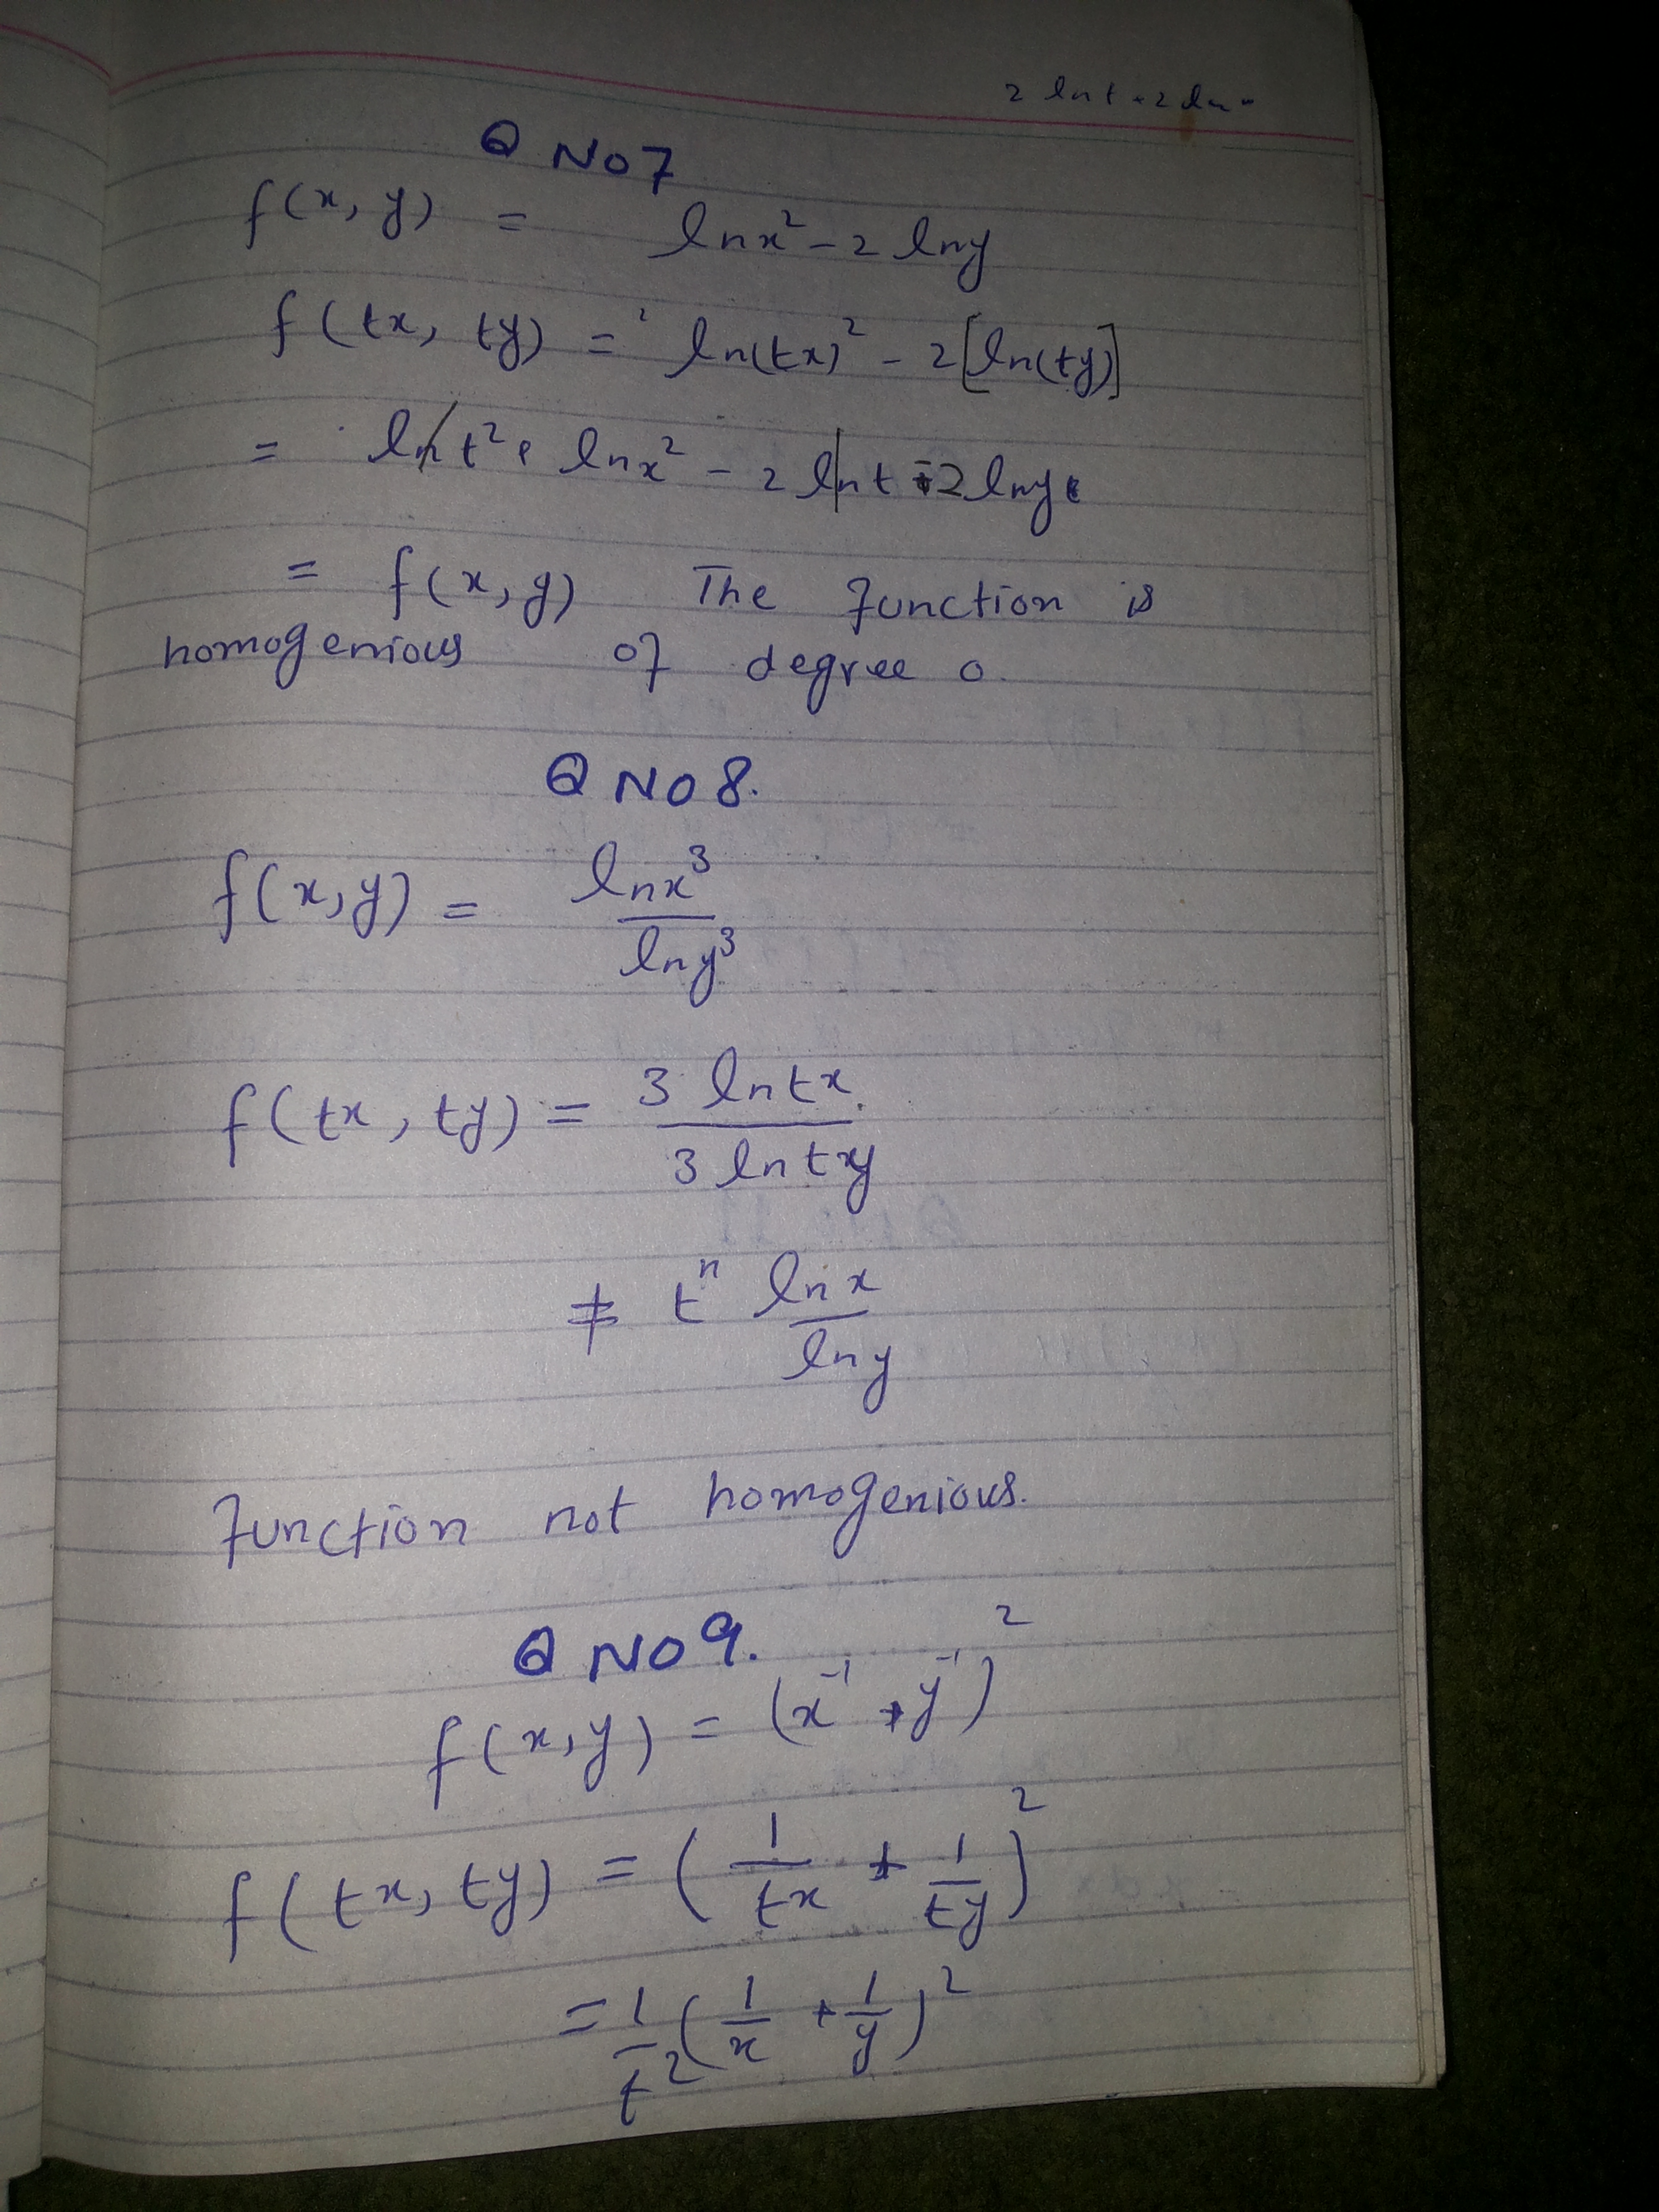 2 ln t + 2 ln
Q NO 7
f(x, y) = lnx² - 2 lny
f(tx, ty) = ln(tx)² - 2[ln(ty)]
= ln t² + lnx² - 2 ln t - 2 lny
= f(x, y) The function is
homogenious of degree 0.
Q NO 8.
f(x,y) = lnx³
lny³
f(tx, ty) = 3 ln tx
3 ln ty
≠ tⁿ ln x
ln y
function not homogenious.
Q NO 9.
f(x,y) = (x⁻¹ + y⁻¹)²
f(tx, ty) = (1/tx + 1/ty)²
= 1/t² (1/x + 1/y)²